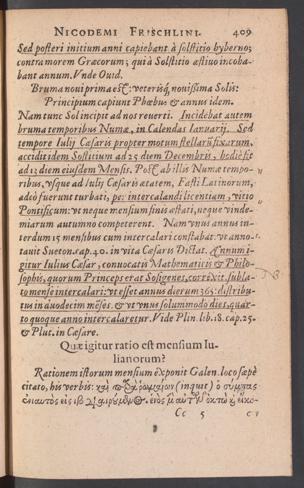 NICODEMI FRISCHLINI. 409
Sed posteri initium anni capiebant à solstitio hyberno;
contra morem Græcorum; qui à Solstitio æstiuo incoha-
bant annum. Vnde Ouid.
Bruma noui prima est: veterisq́; nouissima Solis:
Principium capiunt Phœbus & annus idem.
Nam tunc Sol incipit ad nos reuerti. Incidebat autem
bruma temporibus Numæ, in Calendas Ianuarij. Sed
tempore Iulij Cæsaris propter motum stellarū fixarum,
accidit idem Solstitium ad 25 diem Decembris, hodie fit
ad 12 diem eiusdem Mensis. Post ab illis Numæ tempo-
ribus, vsque ad Iulij Cæsaris ætatem, Fasti Latinorum,
adeò fuerunt turbati, per intercalandi licentiam, vitio
Pontificum: vt neque mensium finis æstati, neque vinde-
miarum autumno competerent. Nam vnus annus in-
terdum 15 mensibus cum intercalari constabat: vt anno-
tauit Sueton. cap. 40. in vita Cæsaris Dictat. Annum i-
gitur Iulius Cæsar, conuocatis Mathematicis & Philo-
sophis, quorum Princeps erat Sosigenes, correxit, subla-
to mense intercalari: vt esset annus dierum 365: distribu-
tus in duodecim mēses. & vt vnus solummodo dies, quar-
to quoque anno intercalaretur. Vide Plin. lib. 18. cap. 25.
& Plut. in Cæsare.
Quæ igitur ratio est mensium Iu-
lianorum?
Rationem istorum mensium exponit Galen. loco sæpè
citato, his verbis: καὶ ῥωμαίων (inquit) ὁ σύμπας
ἐνιαυτὸς εἰς ιβ ὀκτὼ ἢ εἰκο-
Cc 5 σι